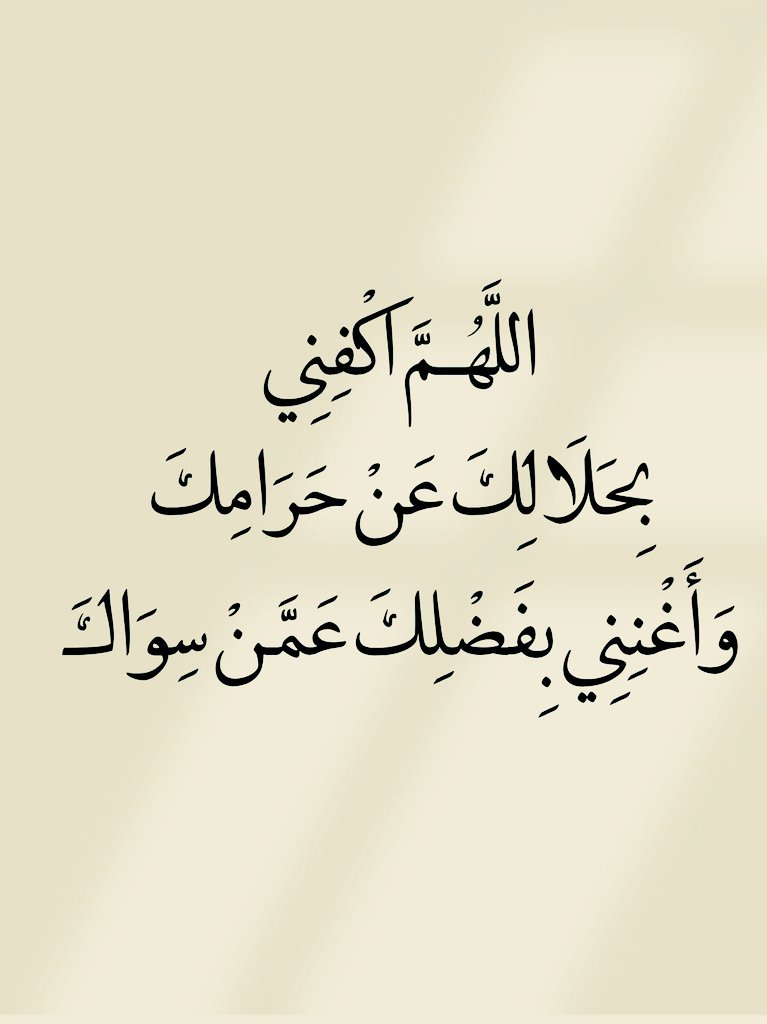 اللَّهُمَّ اكْفِنِي
بِحَلَالِكَ عَنْ حَرَامِكَ
وَأَغْنِنِي بِفَضْلِكَ عَمَّنْ سِوَاكَ